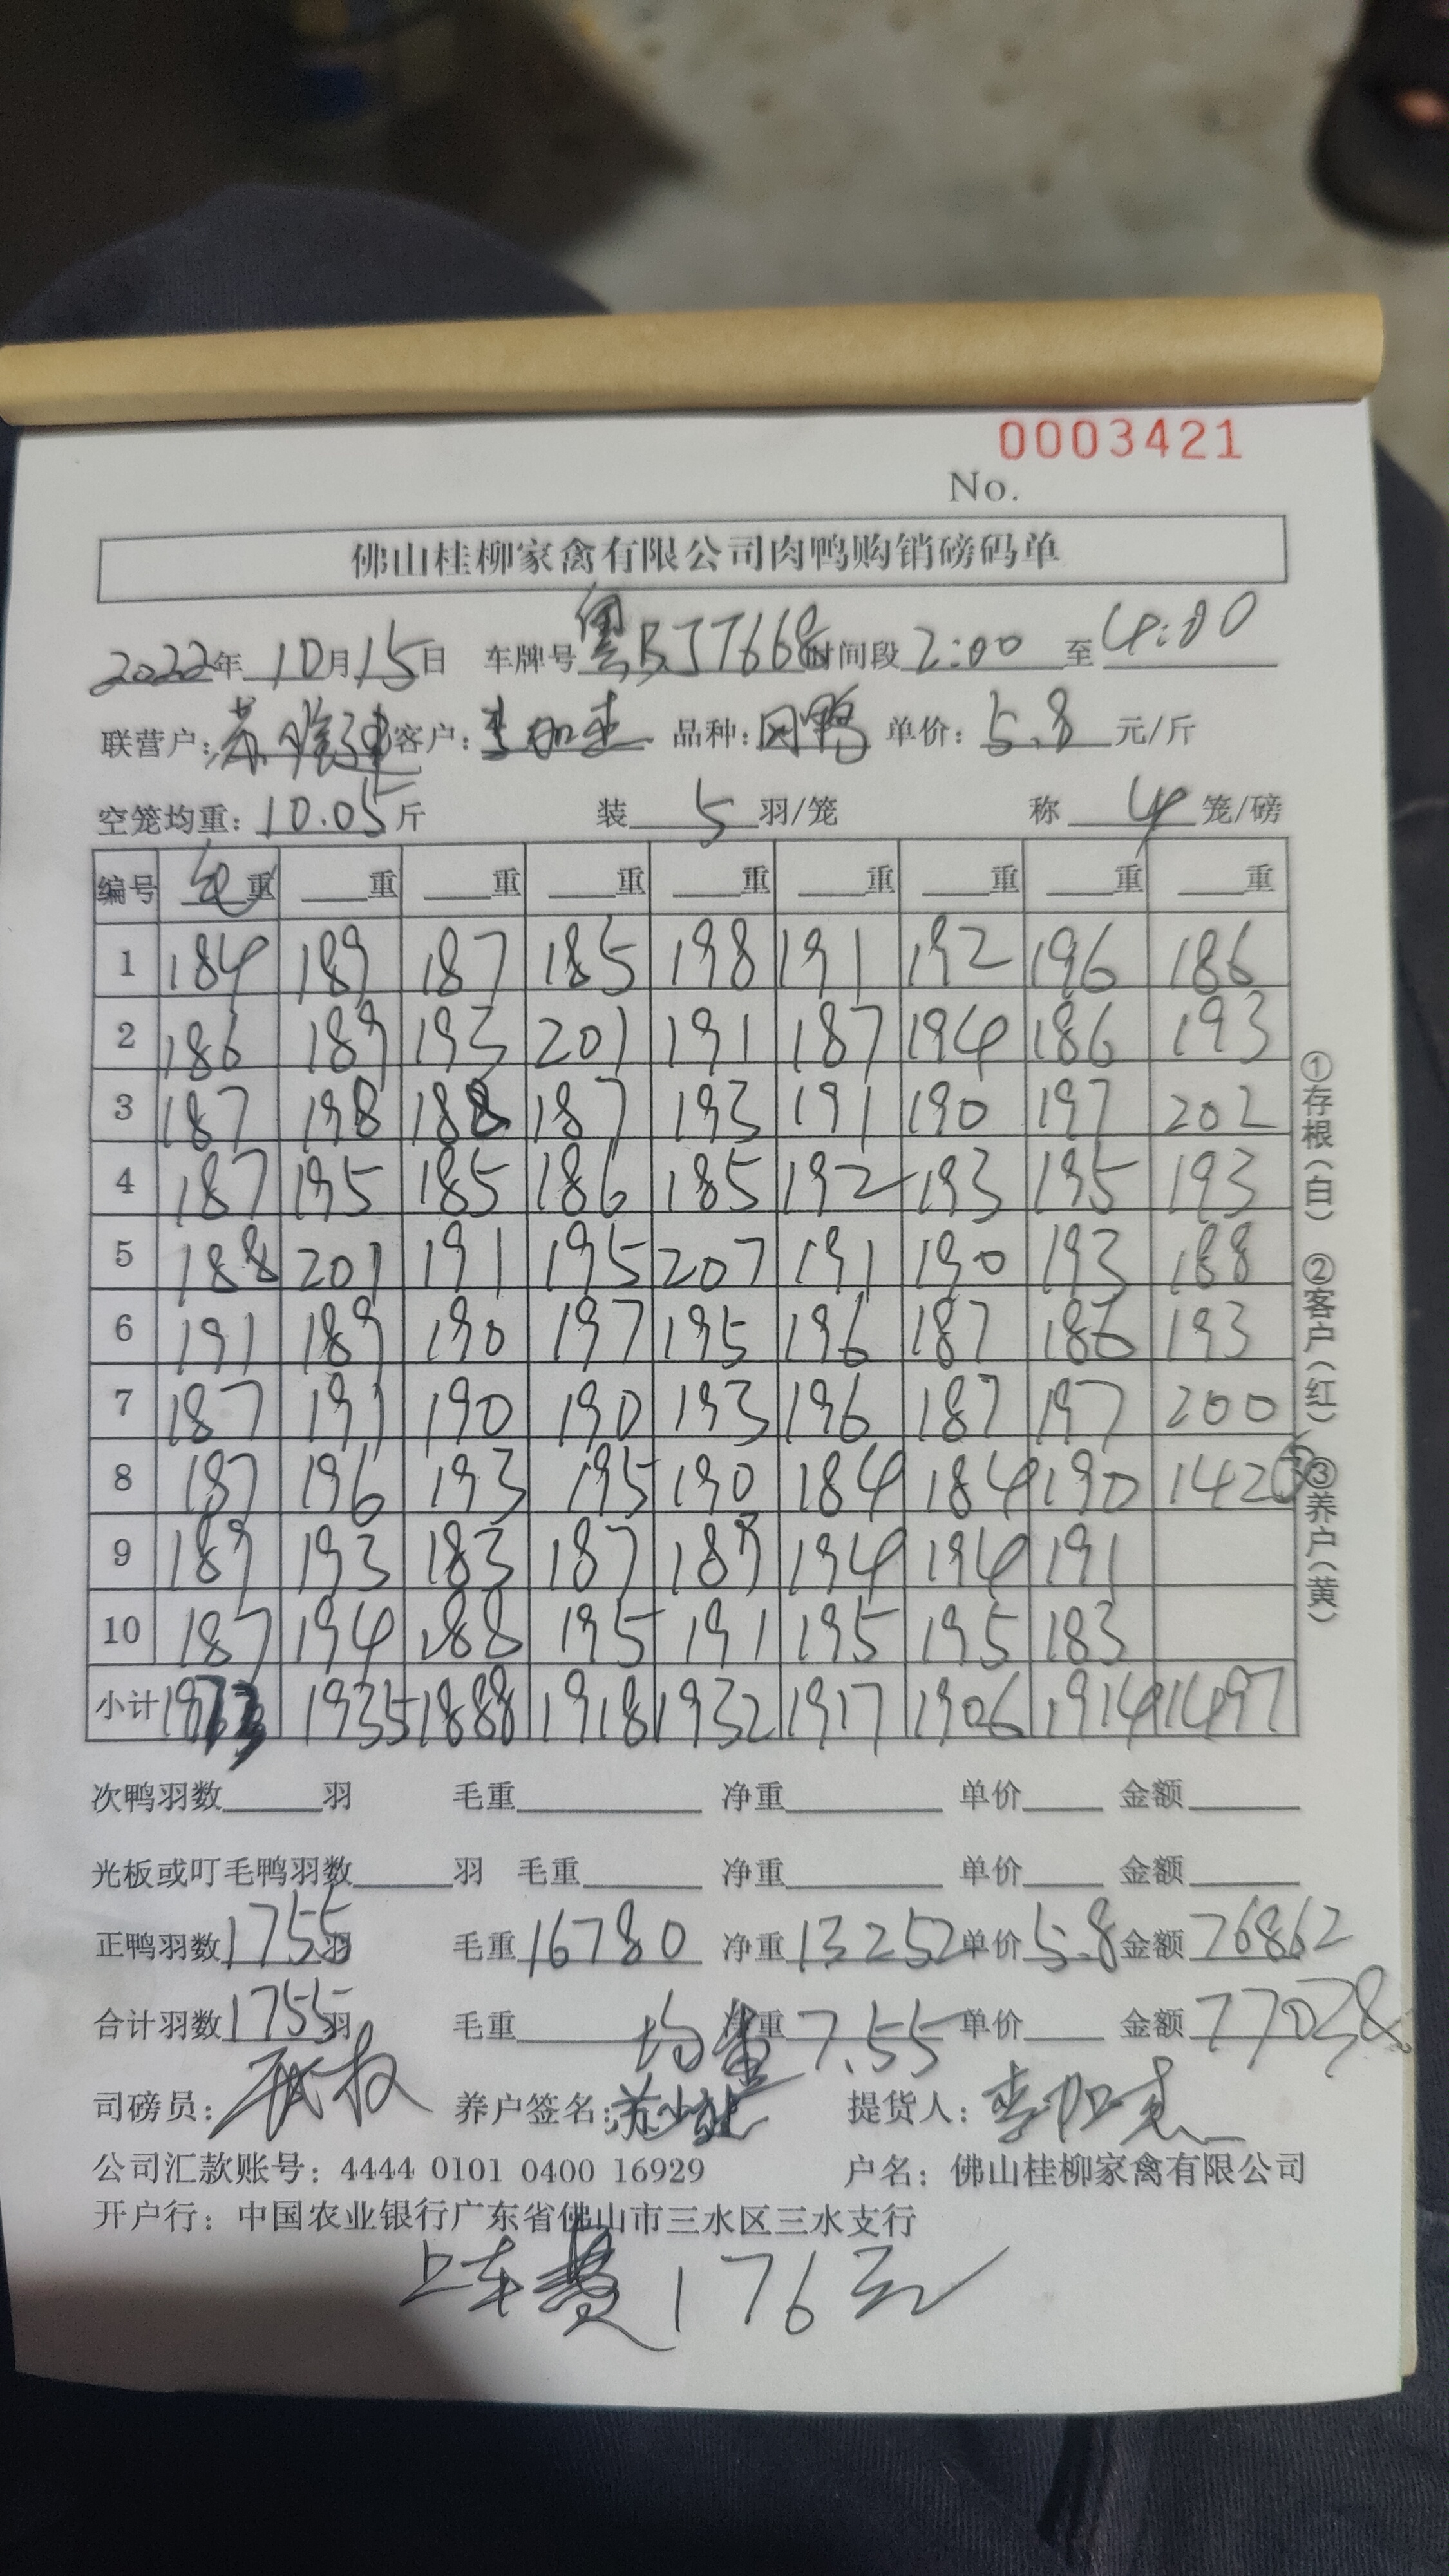 0003421
No.
佛山桂柳家禽有限公司肉鸭购销磅码单
2022年 10月15日 车牌号 粤RJT668 时间段 2:00 至 4:00
联营户: 苏 客户: 李加 品种: 鸭 单价: 5.8 元/斤
空笼均重: 10.05斤 装 5 羽/笼 称 4 笼/磅
编号 毛重 重 重 重 重 重 重 重 重
1 184 189 187 185 198 191 192 196 186
2 186 189 193 201 191 187 194 186 193
3 187 198 188 187 193 191 190 197 202
4 187 195 185 186 185 192 193 195 193
5 188 201 191 195 207 191 190 193 188
6 191 189 190 197 195 196 187 186 193
7 187 191 190 190 193 196 187 197 200
8 187 196 193 195 190 184 184 190 142③
9 189 193 183 187 189 194 194 191
10 187 194 188 195 191 195 195 183
小计 1873 1935 1888 1918 1932 1917 1906 1914 1497
①存根(白) ②客户(红) ③养户(黄)
次鸭羽数 羽 毛重 净重 单价 金额
光板或叮毛鸭羽数 羽 毛重 净重 单价 金额
正鸭羽数 1755羽 毛重 16780 净重 13252 单价 5.8 金额 76862
合计羽数 1755羽 毛重 均重 净重 7.55 单价 金额 77038
司磅员: 权 养户签名: 苏 提货人: 李加
公司汇款账号: 4444 0101 0400 16929 户名: 佛山桂柳家禽有限公司
开户行: 中国农业银行广东省佛山市三水区三水支行
上车费176元